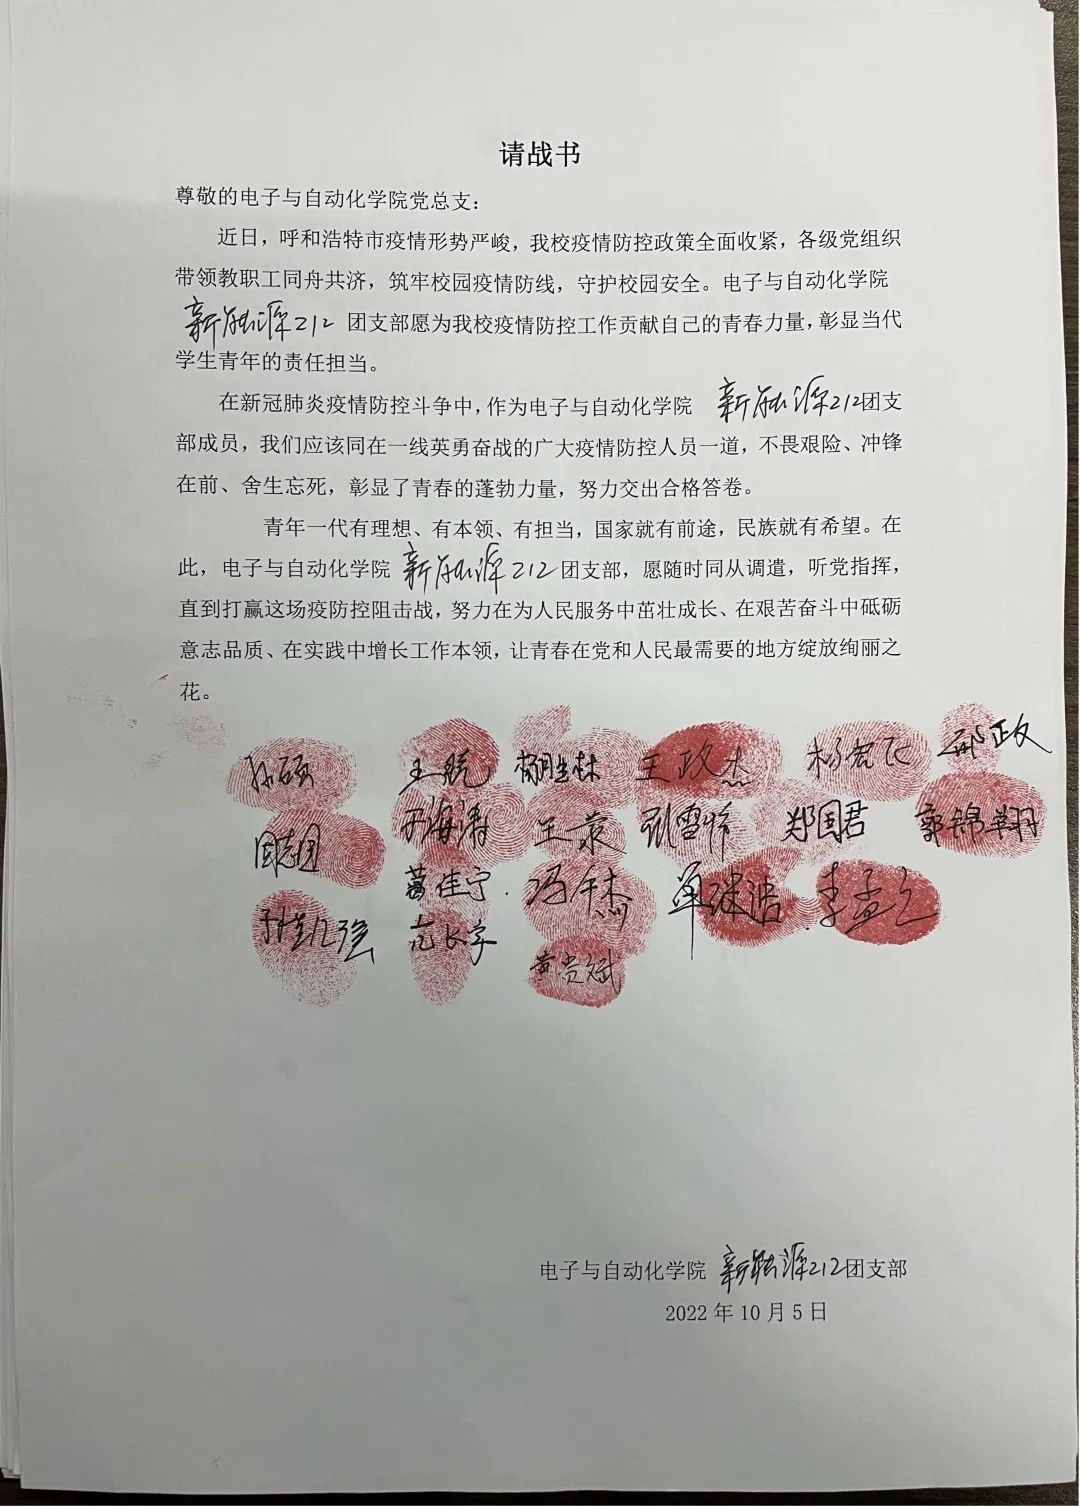 请战书
尊敬的电子与自动化学院党总支：
近日，呼和浩特市疫情形势严峻，我校疫情防控政策全面收紧，各级党组织
带领教职工同舟共济，筑牢校园疫情防线，守护校园安全。电子与自动化学院
新能源212 团支部愿为我校疫情防控工作贡献自己的青春力量，彰显当代
学生青年的责任担当。
在新冠肺炎疫情防控斗争中，作为电子与自动化学院 新能源212团支
部成员，我们应该同在一线英勇奋战的广大疫情防控人员一道，不畏艰险、冲锋
在前、舍生忘死，彰显了青春的蓬勃力量，努力交出合格答卷。
青年一代有理想、有本领、有担当，国家就有前途，民族就有希望。在
此，电子与自动化学院 新能源212团支部，愿随时同从调遣，听党指挥，
直到打赢这场疫防控阻击战，努力在为人民服务中茁壮成长、在艰苦奋斗中砥砺
意志品质、在实践中增长工作本领，让青春在党和人民最需要的地方绽放绚丽之
花。
孙硕 王航 杨胜林 王政杰 杨宏飞 邢政
周志国 王录 刘雪婷 郑国君 郭锦翔
葛佳宁 冯千杰 单继浩 李孟之
范长宇
黄贵斌
电子与自动化学院 新能源212团支部
2022 年 10 月 5 日